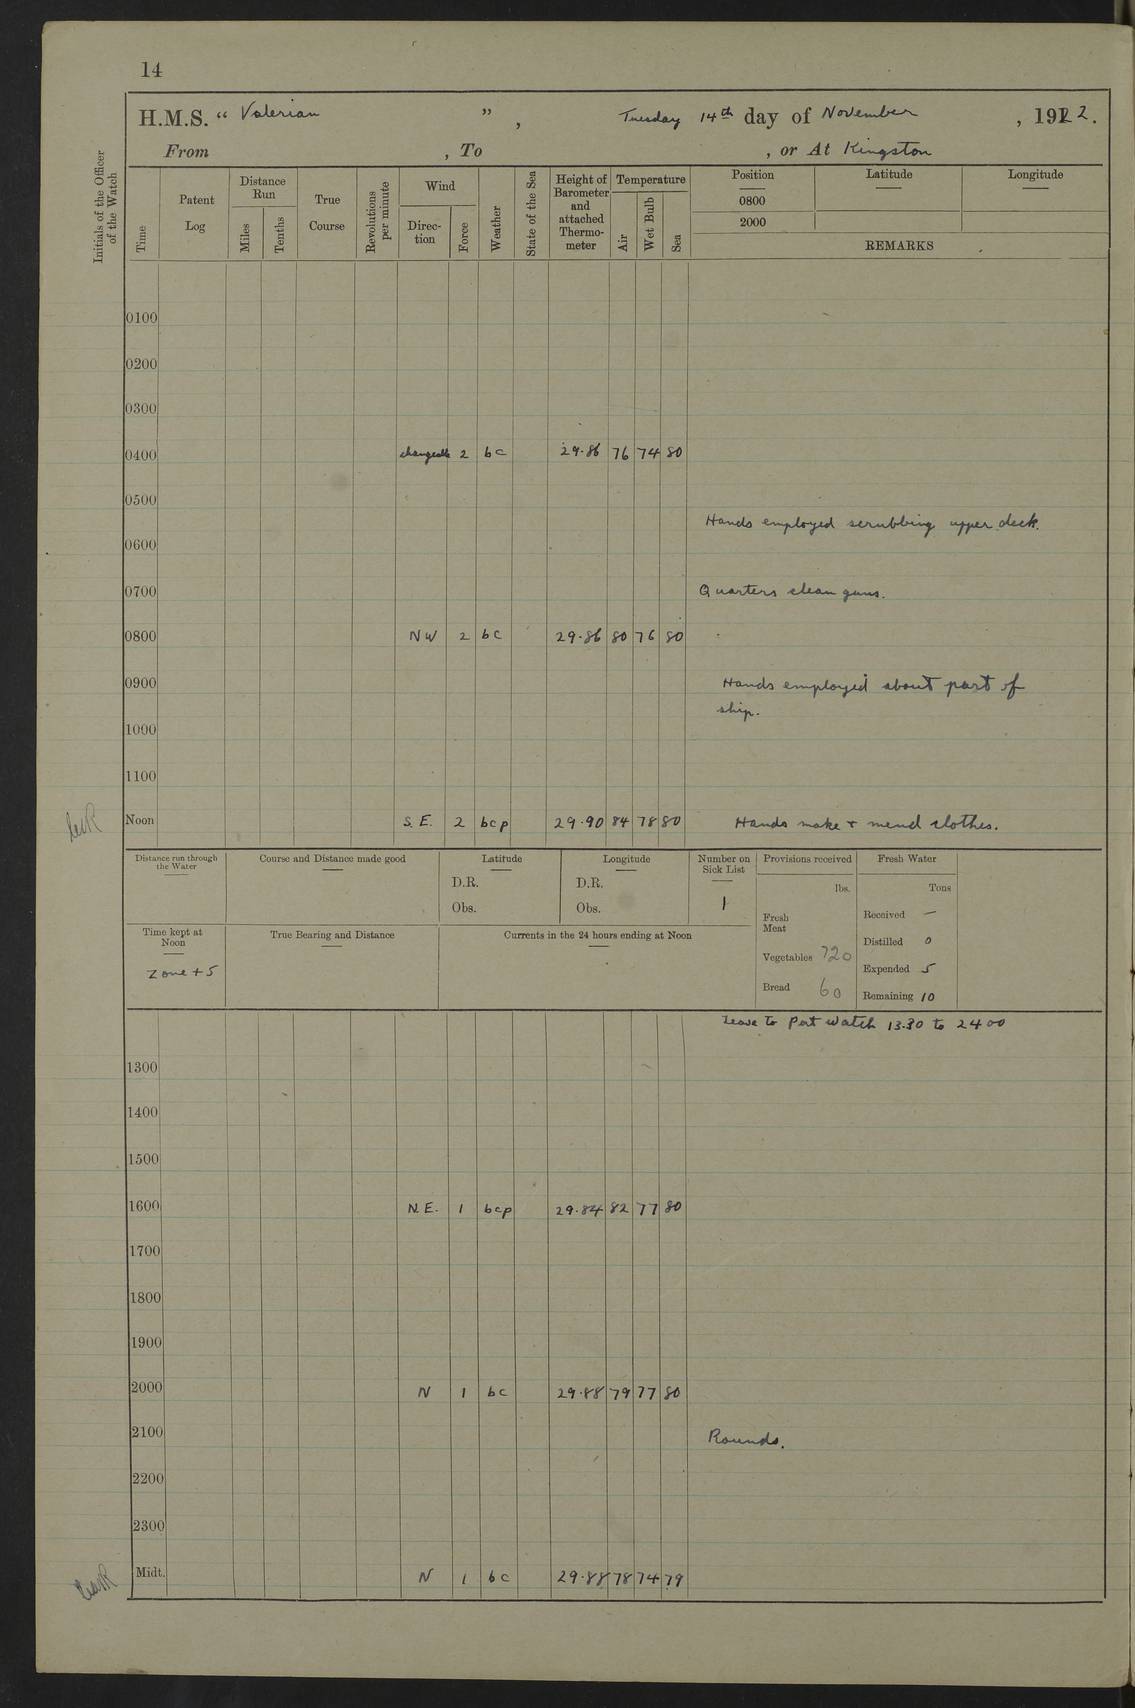 14
H.M.S. “ Valerian ”, Tuesday 14th day of November, 1922.
From , To , or At Kingston
Initials of the Officer of the Watch
Time
Patent Log
Distance Run
Miles
Tenths
True Course
Revolutions per minute
Wind
Direction
Force
Weather
State of the Sea
Height of Barometer and attached Thermometer
Temperature
Air
Wet Bulb
Sea
Position
0800
2000
Latitude
Longitude
REMARKS
0100
0200
0300
0400 changeable 2 bc 29.86 76 74 80
0500
Hands employed scrubbing upper deck.
0600
0700 Quarters clean guns.
0800 NW 2 bc 29.86 80 76 80
0900 Hands employed about part of
ship.
1000
1100
Noon S.E. 2 bcp 29.90 84 78 80 Hands make + mend clothes.
Distance run through the Water
Course and Distance made good
Latitude
D.R.
Obs.
Longitude
D.R.
Obs.
Number on Sick List
1
Provisions received
lbs.
Fresh Meat
Vegetables 720
Bread 60
Fresh Water
Tons
Received —
Distilled 0
Expended 5
Remaining 10
Time kept at Noon
Zone + 5
True Bearing and Distance
Currents in the 24 hours ending at Noon
Leave to Port Watch 13.30 to 2400
1300
1400
1500
1600 N.E. 1 bcp 29.84 82 77 80
1700
1800
1900
2000 N 1 bc 29.88 79 77 80
2100 Rounds.
2200
2300
Midt. N 1 bc 29.88 78 74 79